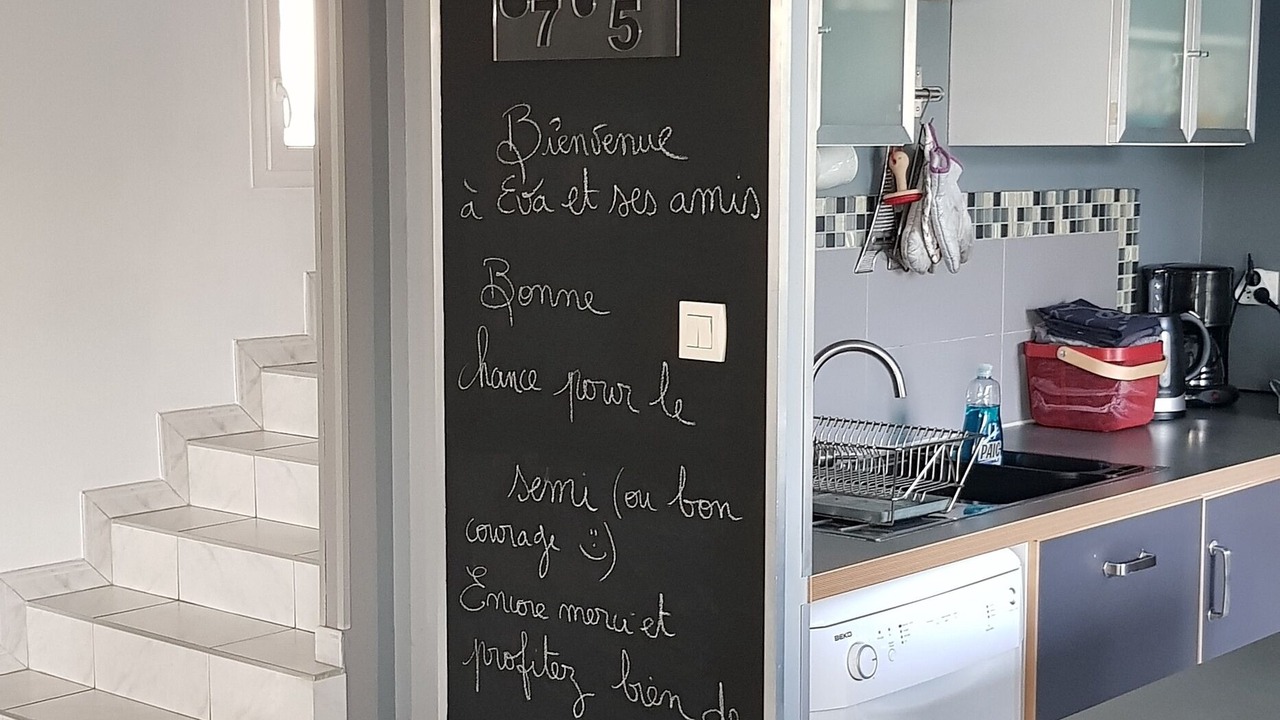 7 5
Bienvenue
à Eva et ses amis
Bonne
chance pour le
semi (ou bon
courage :))
Encore merci et
profitez bien de
PAIC
BEKO